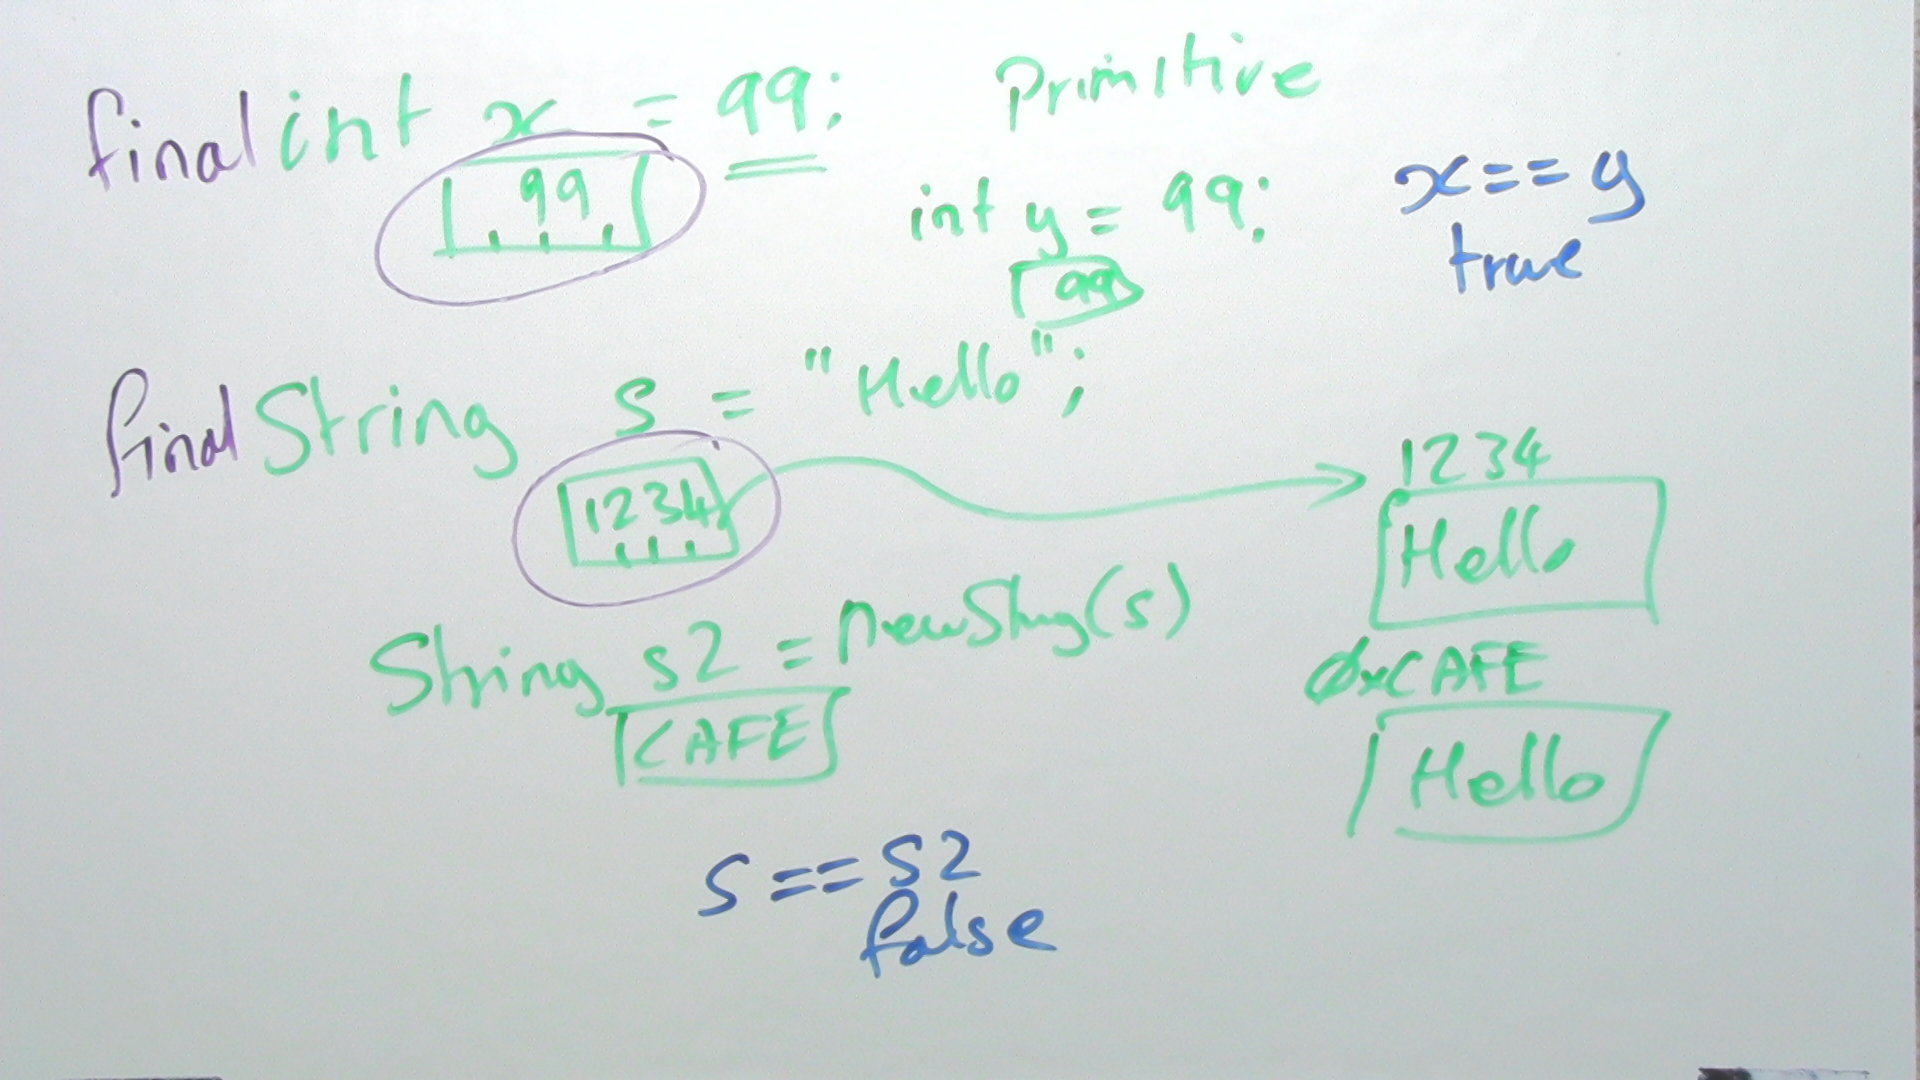 final int x = 99;
Primitive
99
int y = 99;
99
x == y
true
final String s = "Hello";
1234
1234
Hello
String s2 = new Stng(s)
CAFE
0xCAFE
Hello
s == s2
false